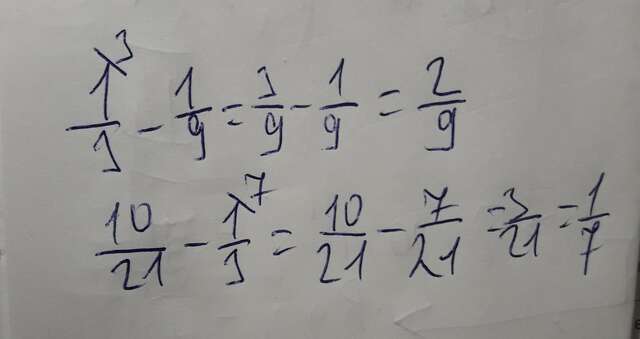 1/3 ³ - 1/9 = 3/9 - 1/9 = 2/9
10/21 - 1/3 ⁷ = 10/21 - 7/21 = 3/21 = 1/7